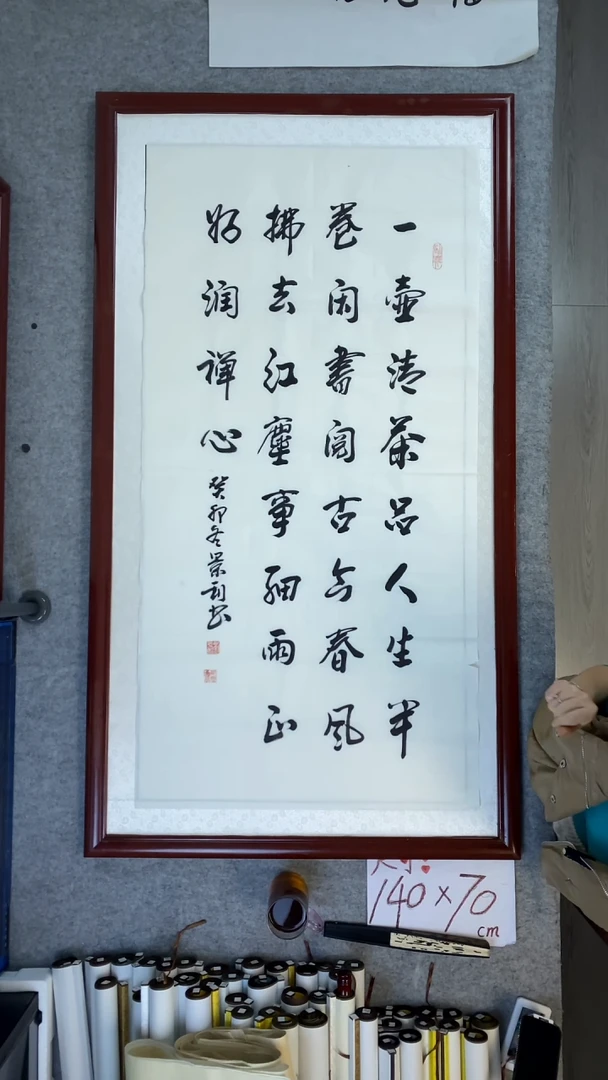 一壺清茶品人生半
卷闲書阅古今春风
拂去红塵事细雨正
好润禅心
癸卯冬景书
尺寸：
140×70
cm